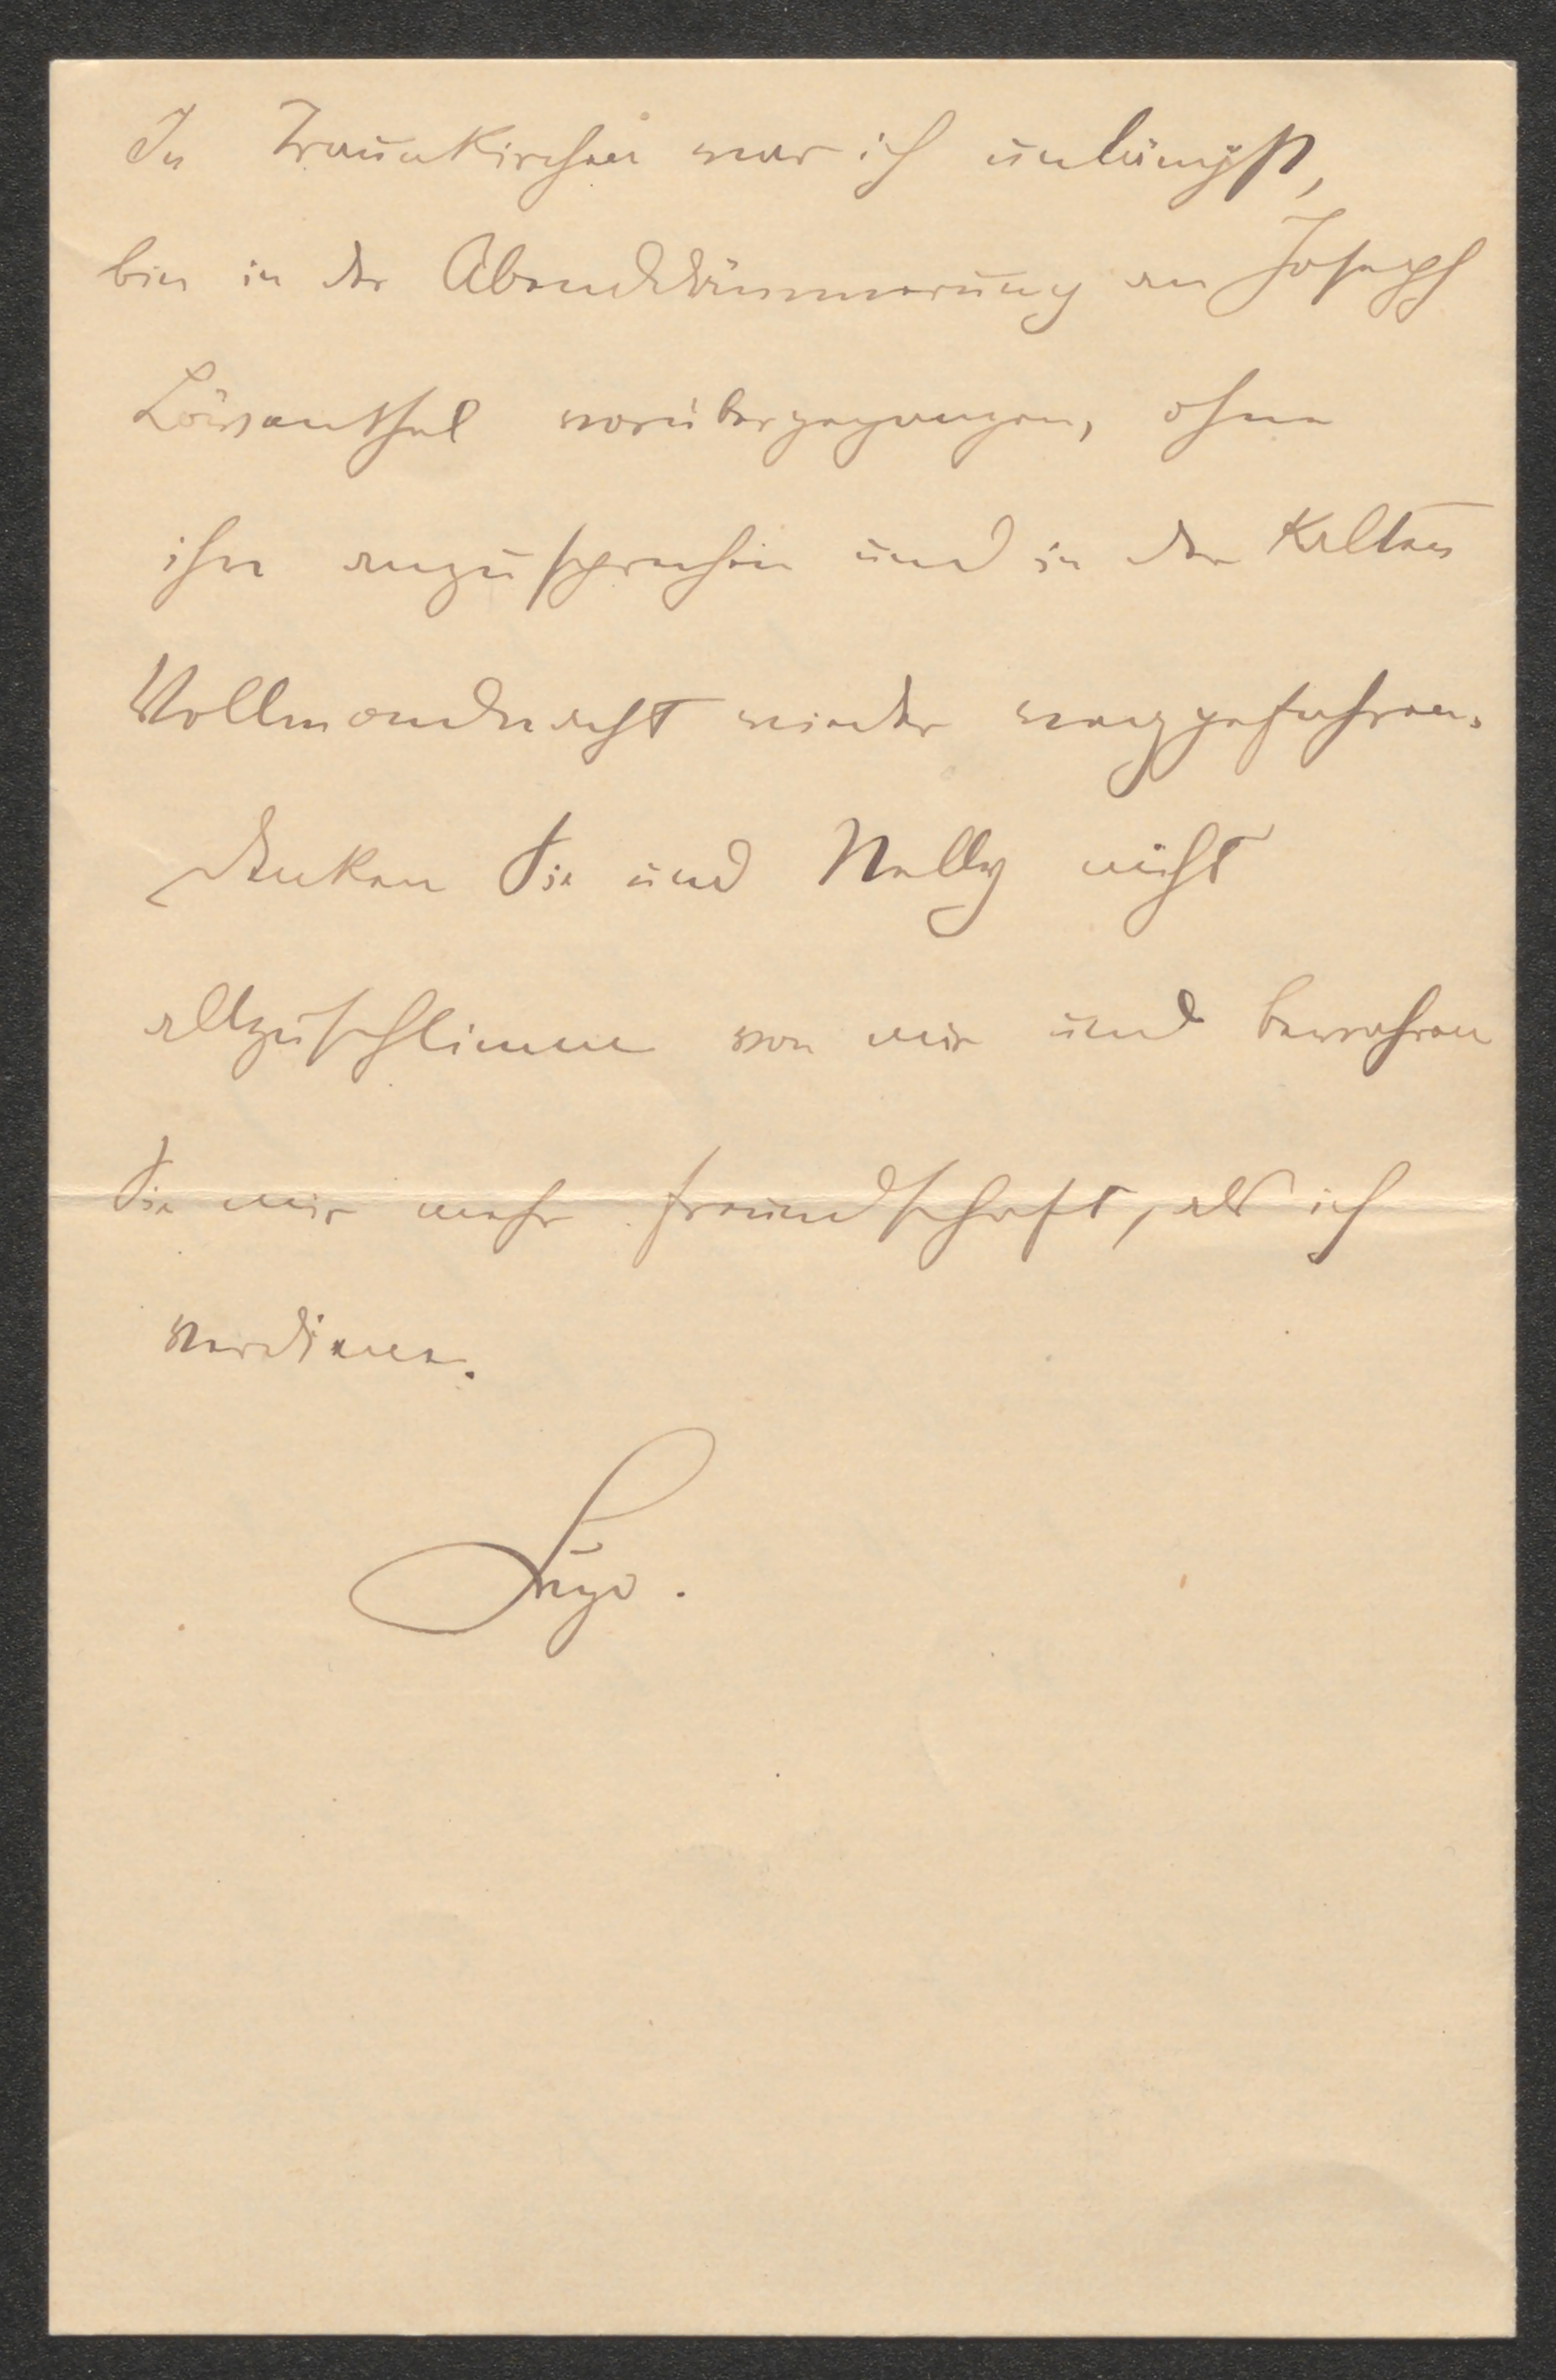 In Traunkirchen war ich unlängst,
bin in der Abenddämmerung an Joseph
Löwenthal vorübergegangen, ohne
ihn anzusprechen und in der kalten
Vollmondnacht wieder weggefahren.
Denken Sie und Nelly nicht
allzuschlimm von mir und bewahren
Sie mir mehr Freundschaft, als ich
verdiene.
Hugo.